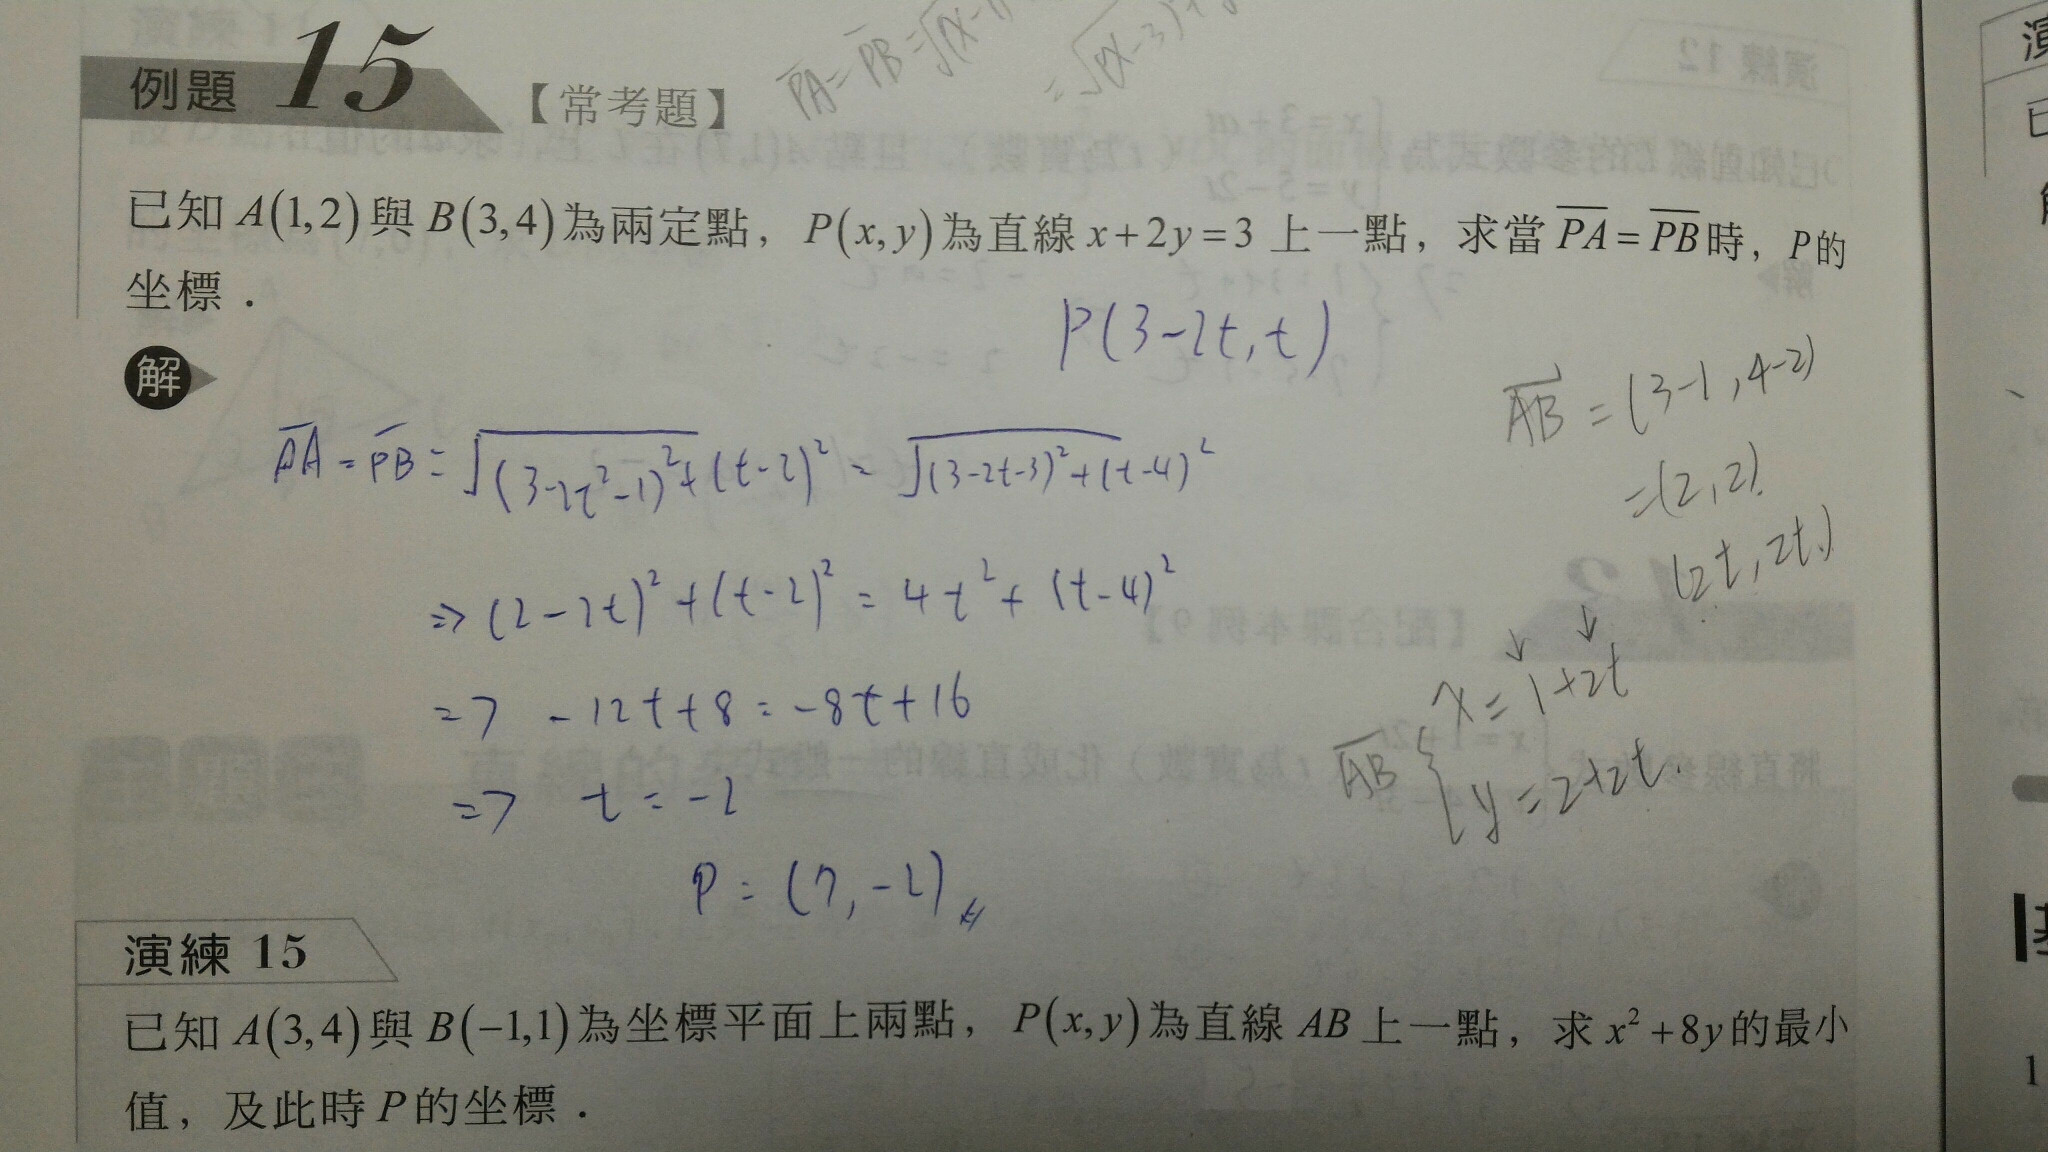 例題 15 【常考題】
PA = PB = √(x-1)
= √(x-3)²+
已知 A(1,2) 與 B(3,4) 為兩定點，P(x,y) 為直線 x+2y=3 上一點，求當 PA = PB 時，P的
坐標．
P(3-2t, t)
解
PA = PB = √(3-2t²-1)²+(t-2)² = √(3-2t-3)²+(t-4)²
⇒ (2-2t)²+(t-2)² = 4t²+(t-4)²
⇒ -12t+8 = -8t+16
⇒ t = -2
P = (7, -2)
AB = (3-1, 4-2)
=(2,2)
(2t, 2t)
↓ ↓
AB { x = 1+2t
y = 2+2t.
演練 15
已知 A(3,4) 與 B(-1,1) 為坐標平面上兩點，P(x,y) 為直線 AB 上一點，求 x²+8y 的最小
值，及此時 P 的坐標．
1